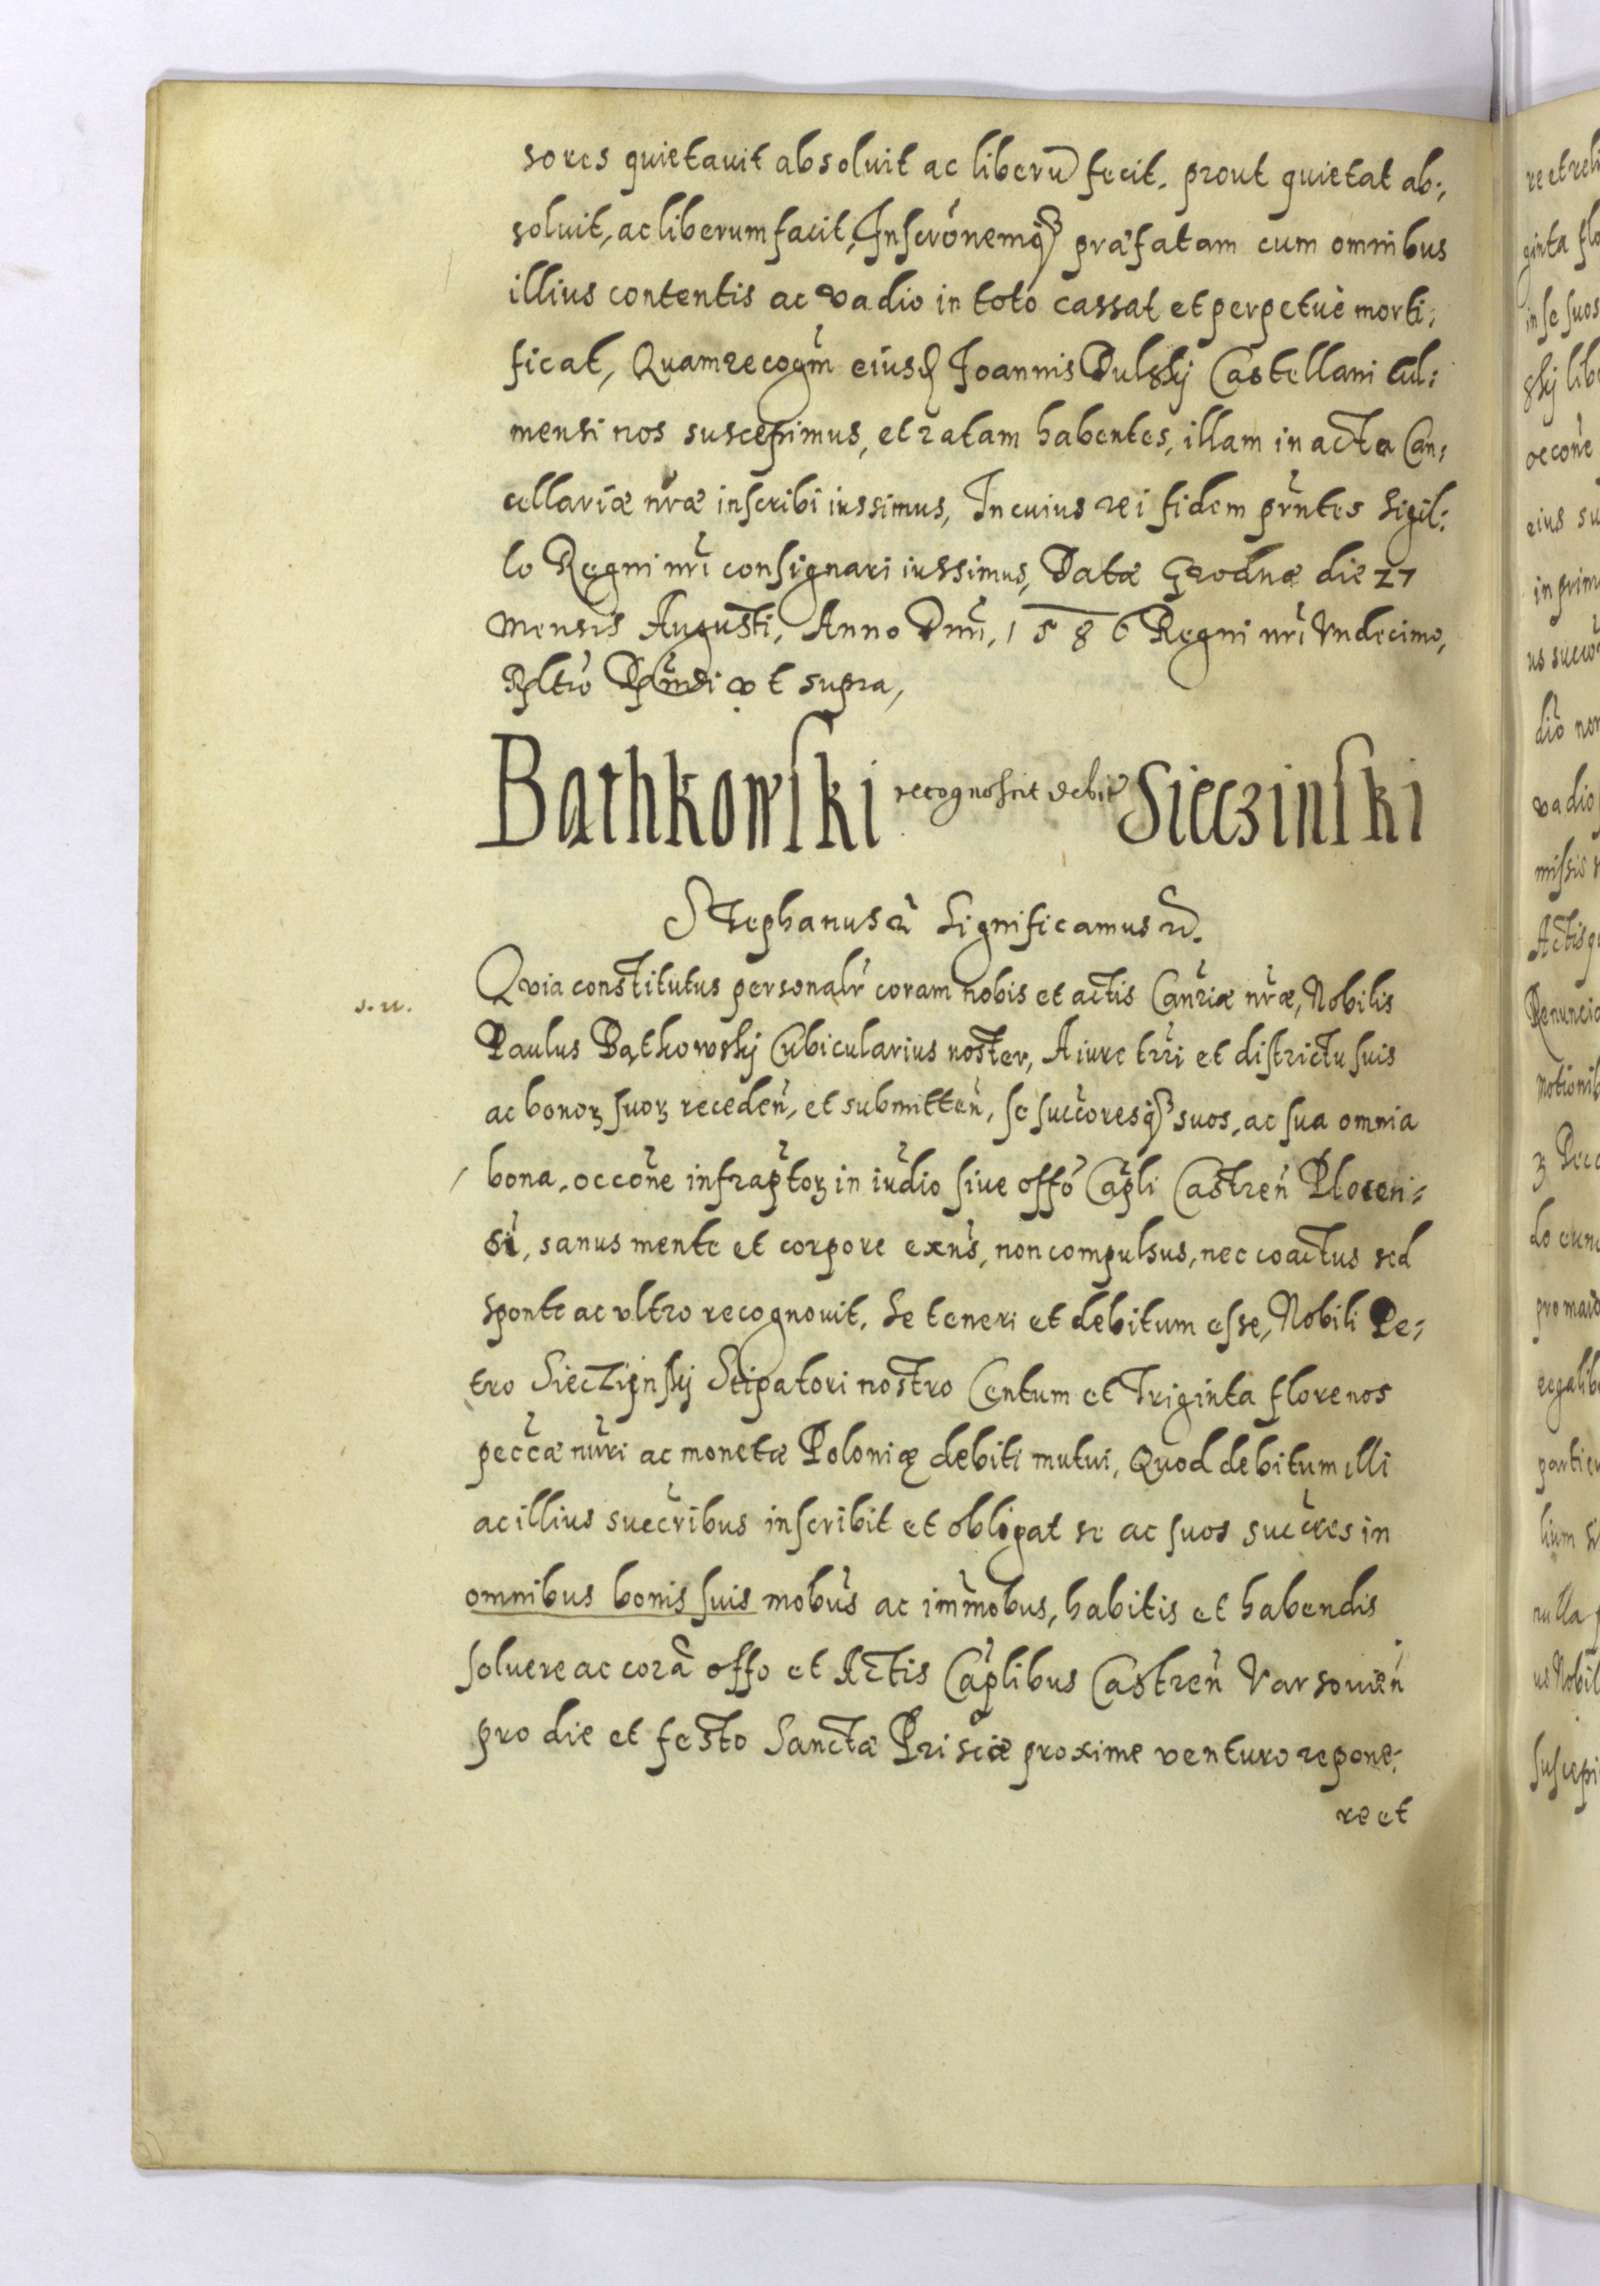 sores quietauit absoluit ac liberũ fecit. prout quietat ab:,
soluit, ac liberum facit, Inscrõnemq3 præfatam cum omnibus
illius contentis ac vadio in toto cassat et perpetuè morti:
ficat, Quam recogm̃ eiusd Joannis Dulskj Castellani Cul:
mensi nos suscepimus, et ratam habentes, illam in acta Can:
cellariæ nr̃æ inscribi iussimus, In cuius rei fidem pr̃ntes Sigil:
lo Regni nr̃i consignari iussimus, Datæ Grodnæ die 27
Mensis Augusti, Anno Dni, 1586 Regni nr̃i Vndecimo,
vt supra,
Bathkowski recognoscit debit Sieczinski
Stephanus Significamus
Quia constitutus personalr̃ coram nobis et actis Canr̃iæ nr̃æ, Nobilis
s. n.
Paulus Bątkowskj Cubicularius noster, A iure trr̃i et districtu suis
ac bonoꝝ suoꝝ receden̄, et submitten̄, se succoresq3 suos, ac sua omnia
bona, occõne infrap̃toꝝ in iud̃io siue offõ Cap̃li Castren̄ Plocen:
si, sanus mente et corpore exñs, non compulsus, nec coactus sed
sponte ac vltro recognouit, Se teneri et debitum esse, Nobili Pe:
tro Sieczijnskj Stipatori nostro Centum et Triginta florenos
pecc̃æ nũri ac monetæ Poloniæ debiti mutui, Quod debitum illi
ac illius succr̃ibus inscribit et obligat se ac suos succr̃es in
omnibus bonis suis mobũs ac imm̃obus, habitis et habendis
soluere ac corã offo et Actis Cap̃libus Castren̄ Varsouien̄
pro die et festo Sanctæ Priscæ proxime venturo repone:
re et